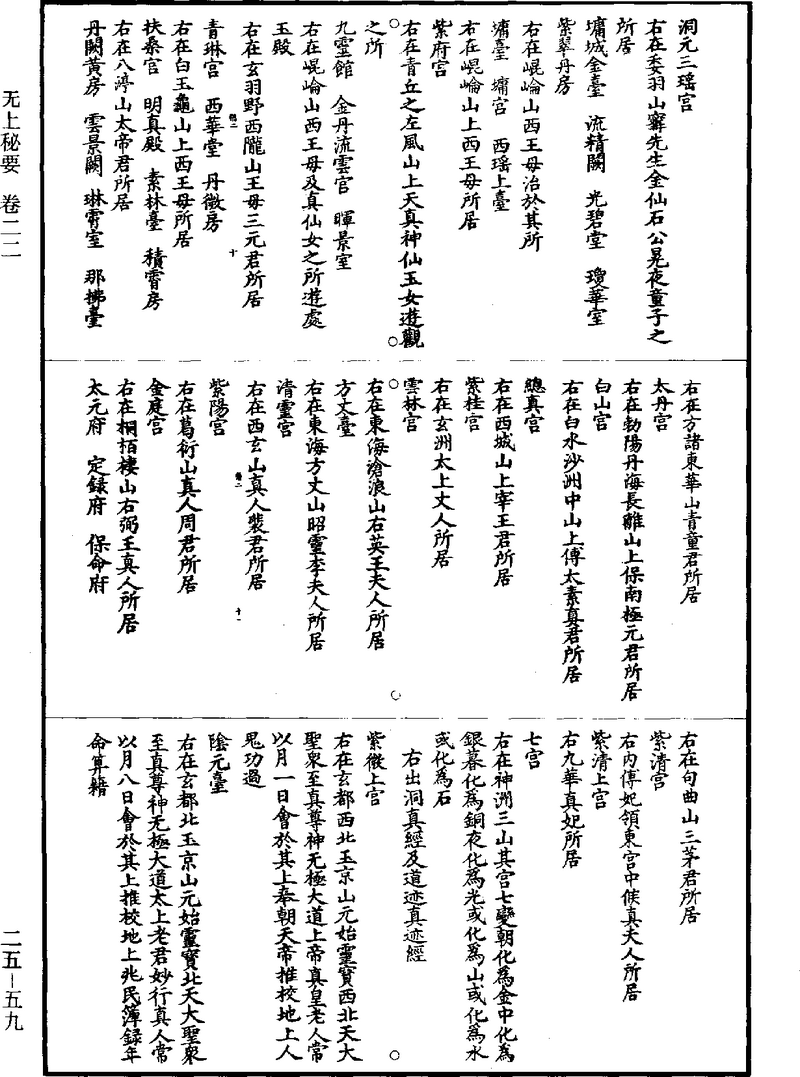 洞元三瑶宫
右在委羽山寗先生金仙石公晃夜童子之
所居
墉城金臺　流精闕　光碧堂　瓊華室
紫翠丹房
右在崐崙山西王母治於其所
墉臺　墉宫　西瑶上臺
右在崐崙山上西王母所居
紫府宫
右在青丘之左風山上天真神仙玉女遊觀
之所
九靈館　金丹流雲宫　暉景室
右在崐崙山西王母及真仙女之所遊處
玉殿
右在玄羽野西隴山王母三元君所居
十
青琳宫　西華堂　丹微房
右在白玉龜山上西王母所居
扶桑宫　明真殿　素林臺　積霄房
右在八渟山太帝君所居
丹闕黄房　雲景闕　琳霄室　那拂臺
右在方諸東華山青童君所居
太丹宫
右在勃陽丹海長離山上保南極元君所居
白山宫
右在白水沙洲中山上傅太素真君所居
總真宫
右在西城山上宰王君所居
紫桂宫
右在玄洲太上丈人所居
雲林宫
右在東海滄浪山右英王夫人所居
方丈臺
右在東海方丈山昭靈李夫人所居
清靈宫
右在西玄山真人裴君所居
十一
紫陽宫
右在葛衍山真人周君所居
金庭宫
右在桐栢棲山右弼王真人所居
太元府　定録府　保命府
右在句曲山三茅君所居
紫清宫
右内傅妃領東宫中候真夫人所居
紫清上宫
右九華真妃所居
七宫
右在神洲三山其宫七變朝化為金中化為
銀暮化為銅夜化為光或化為山或化為水
或化為石
右出洞真經及道迹真迹經
紫微上宫
右在玄都西北玉京山元始靈寶西北天大
聖衆至真尊神无極大道上帝真皇老人常
以月一日會於其上奉朝天帝推校地上人
鬼功過
陰元臺
右在玄都北玉京山元始靈寶北天大聖衆
至真尊神无極大道太上老君妙行真人常
以月八日會於其上推校地上兆民簿録年
命算籍
无上秘要　卷二二
二五－五九